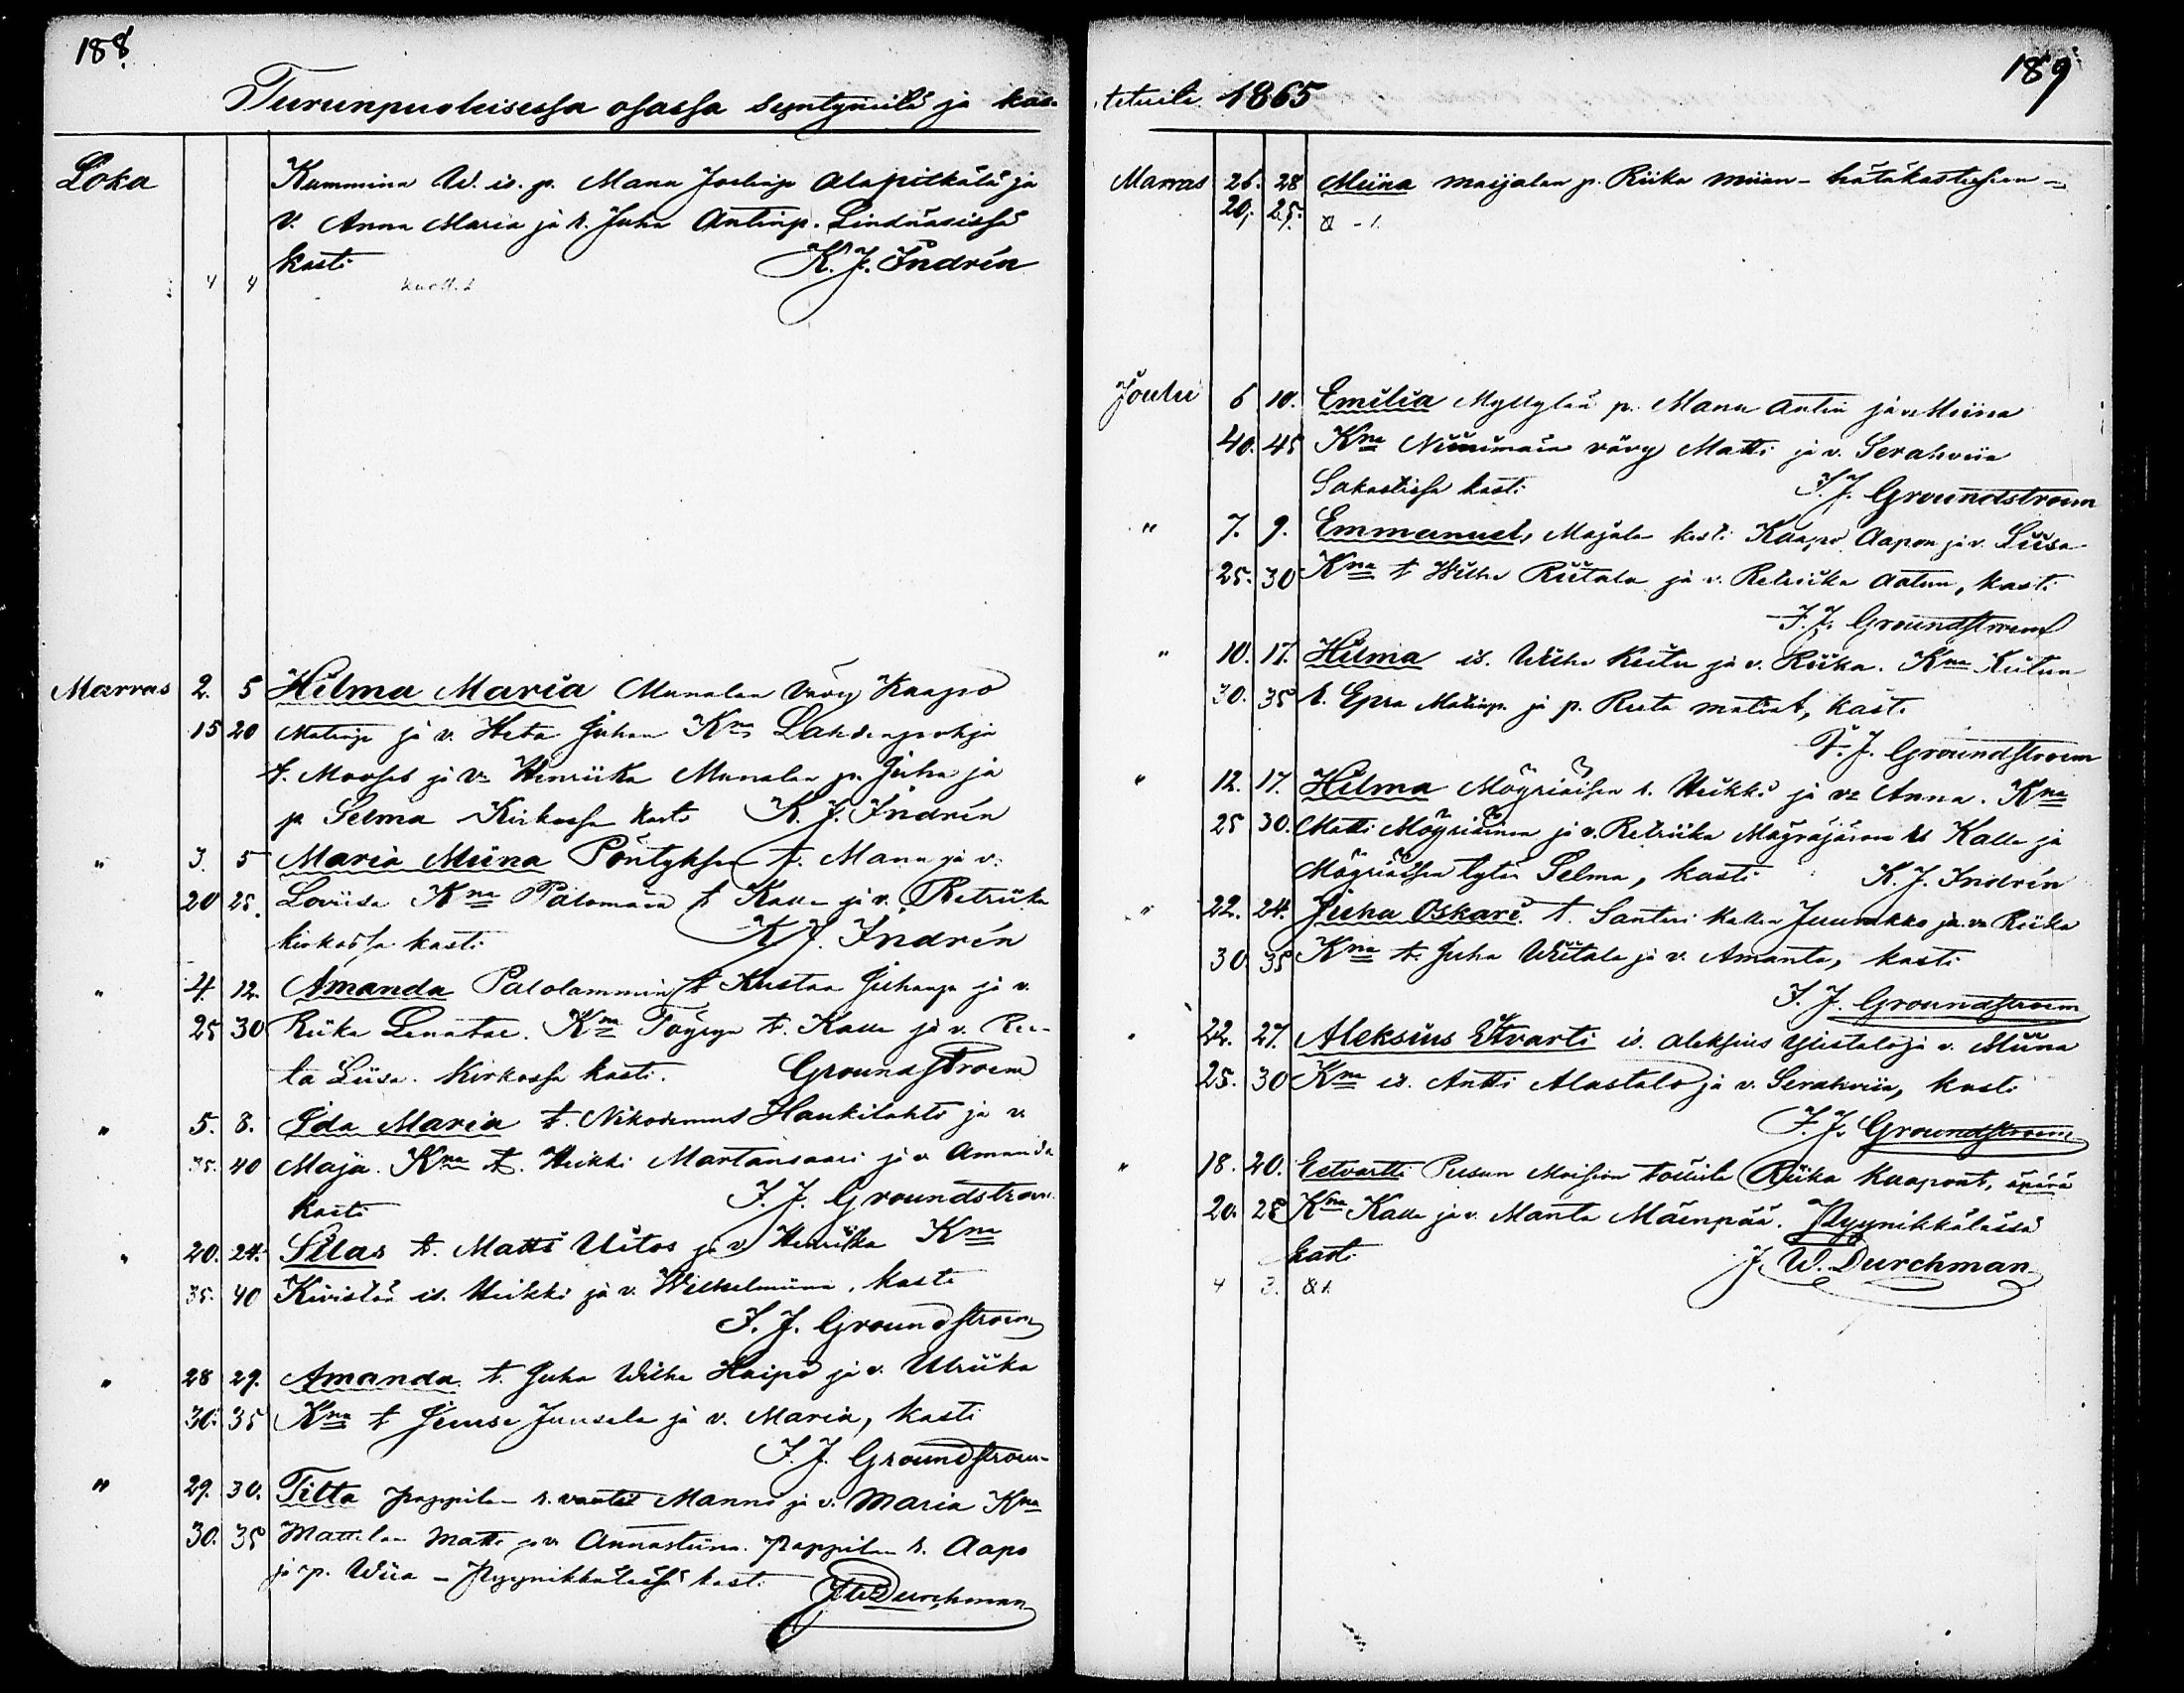 188.
Turunpuoleisessa osassa syntyneitä ja kas-
Loka Kummina W. is. p. Manu Alapitkälä ja
v. Anna Maria ja r. Juha Antinp.
kasti K. J. Indrén
4 4
Marras 2. 5 Hilma Maria Munalan Kaapo
15 20 Matinp ja v. Heta Juhan Kna Lahdenpohja
t. Mooses ja v. Henriika Munalan p. Juha ja
p. Selma Kirkossa kasti K. J. Indrén
" 3. 5 Maria Miina t. Manu ja v.
20 25. Loviisa Kna Palomäen t. Kalle ja v. Retriika
kirkossa kasti K. J. Indrén
" 4. 12. Amanda Palolammin t. Kustaa Juhanp ja v.
25 30 Riika Kna Töyryn t. Kalle ja v. Ree-
ta Liisa. Kirkossa kasti. Groundstroem
" 5. 8. Ida Maria t. Nikodemus Haukilahti ja v.
35. 40 Maja. Kna t. Heikki Martansaari ja v. Amanda
kasti F. J. Groundstroem
" 20. 24. Silas t. Matti Uitos ja v. Henriika Kna
35. 40 Kivistön is. Heikki ja v. Wilhelmiina, kasti
F. J. Groundstroem
" 28 29. Amanda t. Juha Wilhe ja v. Ulriika
30. 35 Kna t. Juuse Juusela ja v. Maria, kasti
F. J. Groundstroem
" 29. 30. Tilta Pappilan r. Manni ja v. Maria Kna
30. 35 Mattilan Matti ja v. Annastiina. Pappilan r. Aapo
ja p. Wiia - Pyynikkälässä kasti J. W. Durchman
189
tetuita 1865
Marras 26. 28 Miina maijalan p. Riika miian - hätäkasteessa -
20. 25. - 1.
Joulu 6 10. Emilia Myllylän p. Manu Antin ja v. Miina
40. 45 Kna Niinimäen Matti ja v. Serahviia
kasti F. J. Groundstroem
" 7. 9. Emmanuel, Majala Kaapo Aapon ja v. Liisa
25. 30 Kna t. Wilhe Riitala ja v. Retriika Aatun, kasti
F. J. Groundstroem
" 10. 17. Hilma is. Wilhe Keitu ja v. Riika. Kna Keitun
30. 35 r. Epra Matinp. ja p. Reeta matint, kasti
F. J. Groundstroem
" 12. 17. Hilma Mögriäisen r. Heikki ja v. Anna. Kna
25 30. Matti Mögriäinen ja v. Retriika Mägräjärven Kalle ja
Mögriäisen tytär Selma, kasti K. J. Indrén
" 22. 24. Juha Oskari. t. Santeri Kallen Juurakko ja v. Riika
30. 35 Kna t. Juha Wiitala ja v. Amanta, kasti
F. J. Groundstroem
" 22. 27. Aleksius Etvarti is. Aleksius Ylistalo ja v. Miina
25. 30 Kna is. Antti Alastalo ja v. Serahviia, kasti
F. J. Groundstroem
" 18. 20. Eetvartti Moision Riika Kaapont, äpärä
20. 25 Kna Kalle ja v. Manta Mäenpää. Pyynikkälässä
kasti J. W. Durchman
4 3. & 1.